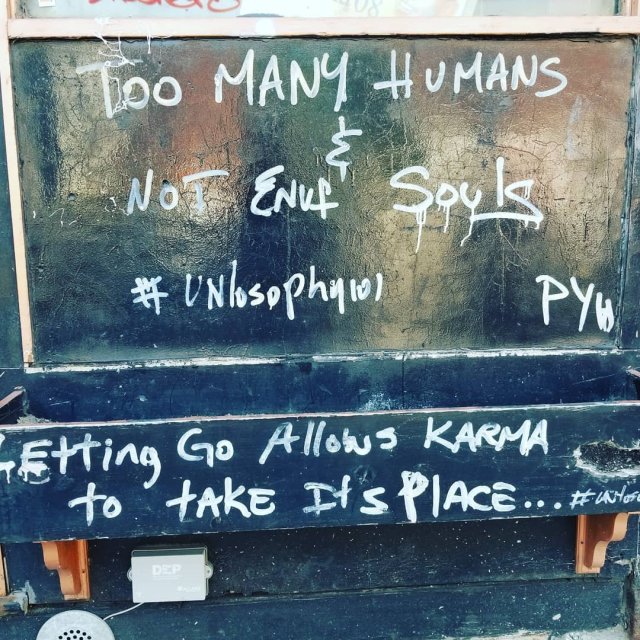 Too MANY HUMANS
&
NOT ENUF Souls
#UNlosophy101
PYW
GEtting Go Allows KARMA
to tAKE Its PlACE...
DEP